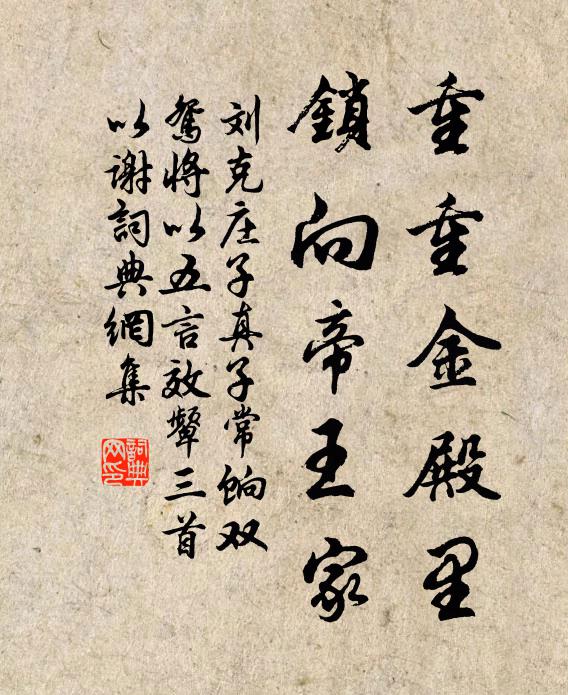 重重金殿里
鎖向帝王家
刘克庄子真子常饷双
鸳将以五言效颦三首
以谢詞典網集
詞典
网印